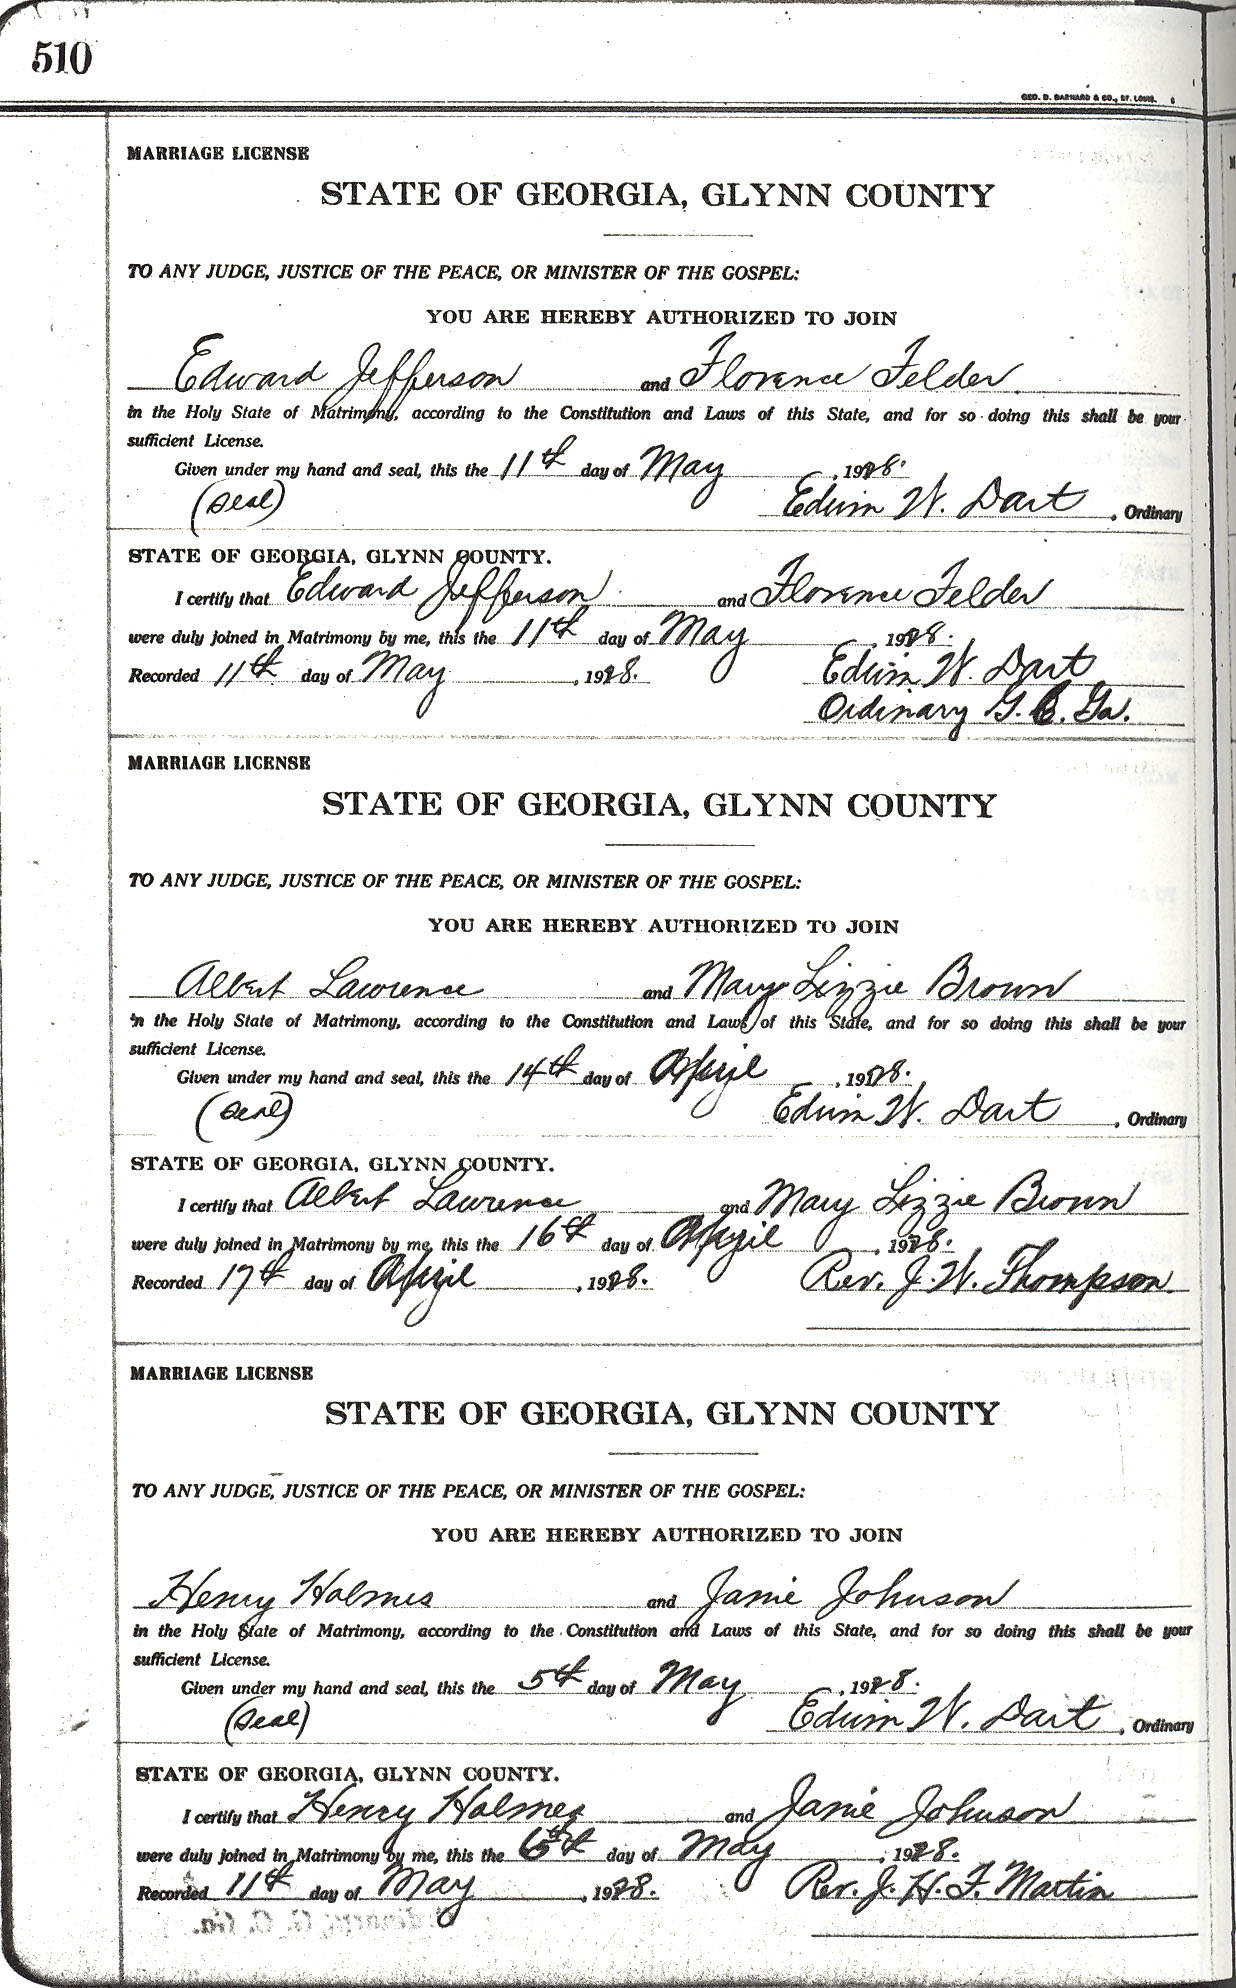 510
GEO. D. BARNARD & CO., ST. LOUIS.
MARRIAGE LICENSE
STATE OF GEORGIA, GLYNN COUNTY
TO ANY JUDGE, JUSTICE OF THE PEACE, OR MINISTER OF THE GOSPEL:
YOU ARE HEREBY AUTHORIZED TO JOIN
Edward Jefferson and Florence Felder
in the Holy State of Matrimony, according to the Constitution and Laws of this State, and for so doing this shall be your
sufficient License.
Given under my hand and seal, this the 11th day of May, 1928.
(Seal) Edwin W. Dart, Ordinary
STATE OF GEORGIA, GLYNN COUNTY.
I certify that Edward Jefferson and Florence Felder
were duly joined in Matrimony by me, this the 11th day of May, 1928.
Recorded 11th day of May, 1928. Edwin W. Dart
Ordinary G. C. Ga.
MARRIAGE LICENSE
STATE OF GEORGIA, GLYNN COUNTY
TO ANY JUDGE, JUSTICE OF THE PEACE, OR MINISTER OF THE GOSPEL:
YOU ARE HEREBY AUTHORIZED TO JOIN
Albert Lawrence and Mary Lizzie Brown
in the Holy State of Matrimony, according to the Constitution and Laws of this State, and for so doing this shall be your
sufficient License.
Given under my hand and seal, this the 14th day of April, 1928.
(Seal) Edwin W. Dart, Ordinary
STATE OF GEORGIA, GLYNN COUNTY.
I certify that Albert Lawrence and Mary Lizzie Brown
were duly joined in Matrimony by me, this the 16th day of April, 1928.
Recorded 17th day of April, 1928. Rev. J. W. Thompson
MARRIAGE LICENSE
STATE OF GEORGIA, GLYNN COUNTY
TO ANY JUDGE, JUSTICE OF THE PEACE, OR MINISTER OF THE GOSPEL:
YOU ARE HEREBY AUTHORIZED TO JOIN
Henry Holmes and Janie Johnson
in the Holy State of Matrimony, according to the Constitution and Laws of this State, and for so doing this shall be your
sufficient License.
Given under my hand and seal, this the 5th day of May, 1928.
(Seal) Edwin W. Dart, Ordinary
STATE OF GEORGIA, GLYNN COUNTY.
I certify that Henry Holmes and Janie Johnson
were duly joined in Matrimony by me, this the 6th day of May, 1928.
Recorded 11th day of May, 1928. Rev. J. H. F. Martin